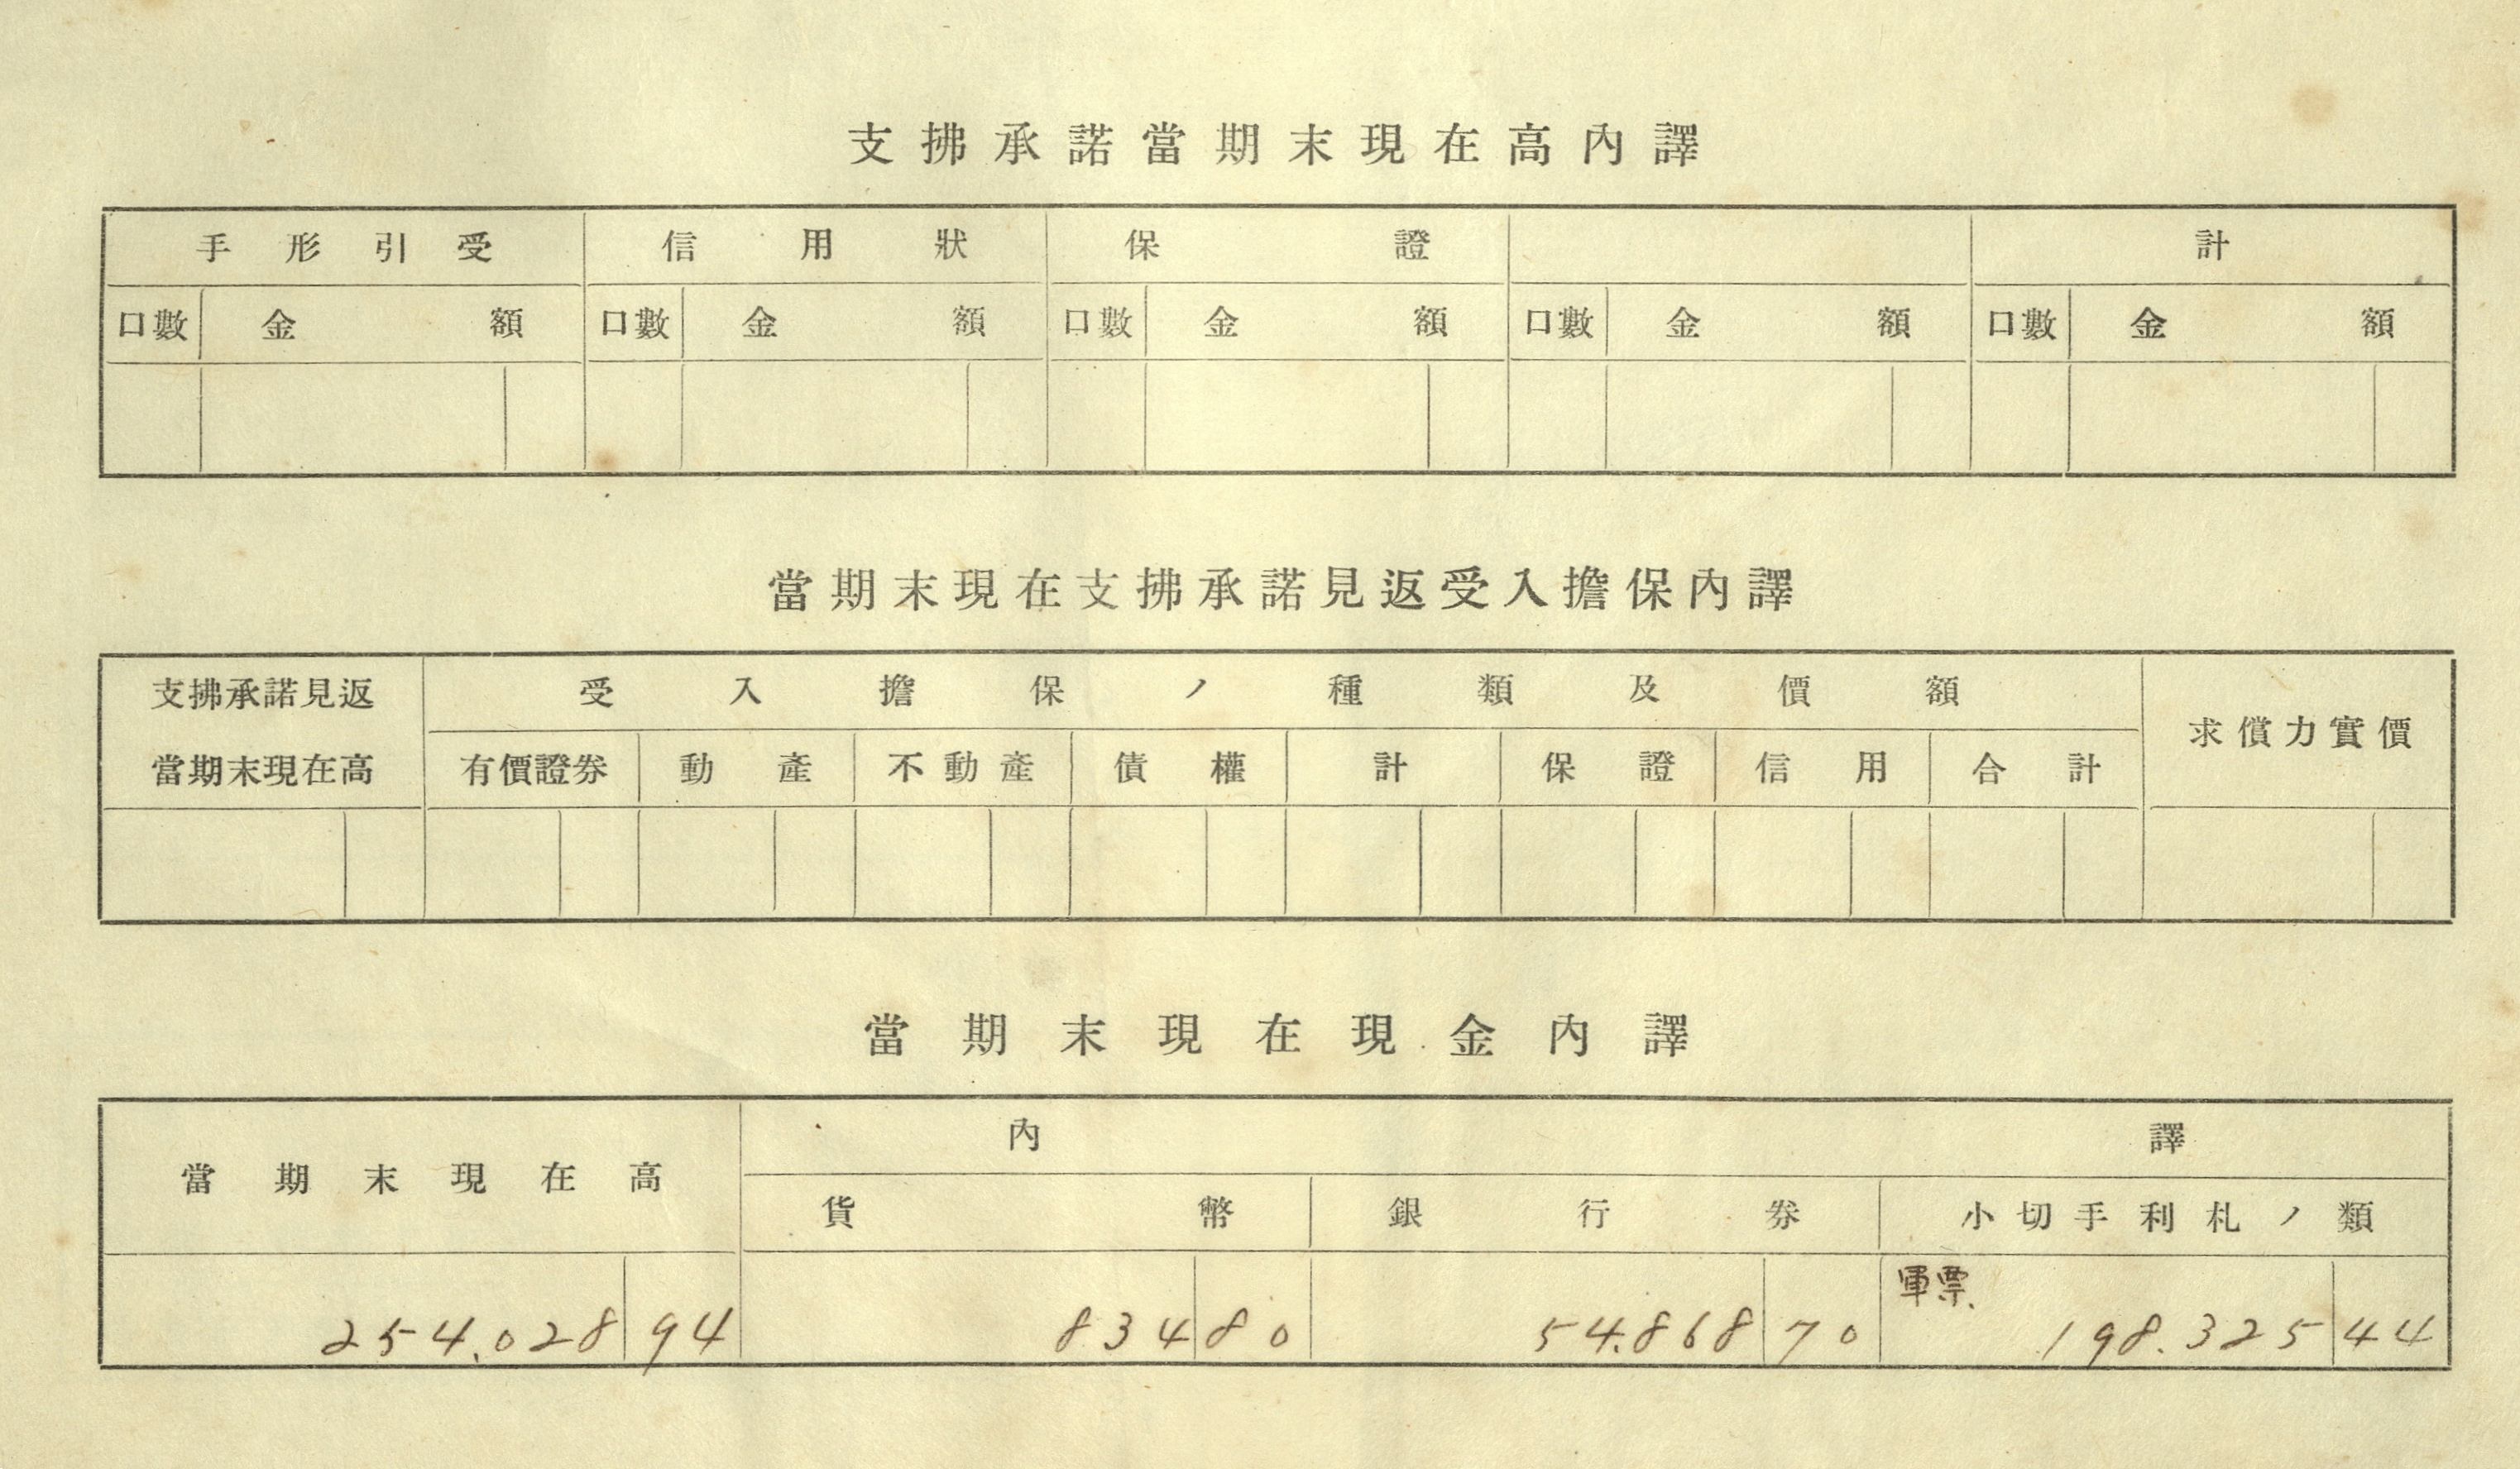 支拂承諾當期末現在高內譯
手形引受 信用狀 保證 計
口數 金額 口數 金額 口數 金額 口數 金額 口數 金額
當期末現在支拂承諾見返受入擔保內譯
支拂承諾見返 受入擔保ノ種類及價額
求償力實價
當期末現在高 有價證券 動產 不動產 債權 計 保證 信用 合計
當期末現在現金內譯
內譯
當期末現在高
貨幣 銀行券 小切手利札ノ類
軍票、
254.028 94 834 80 54.868 70 198.325 44